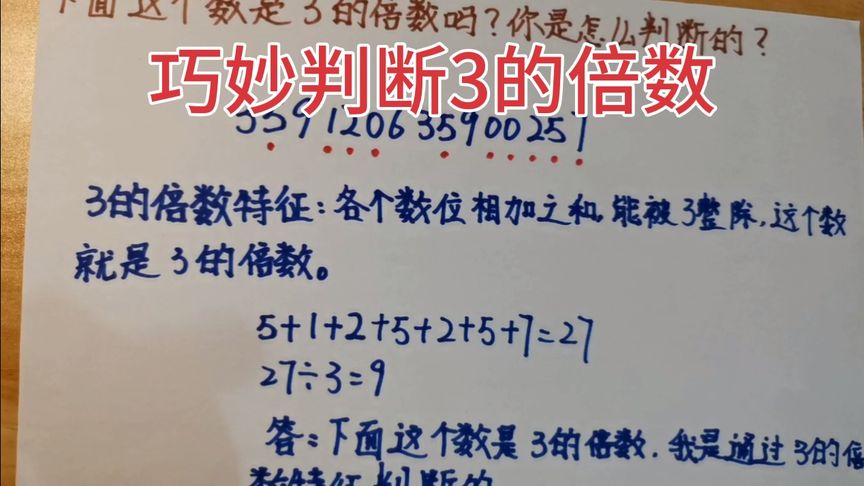 下面这个数是3的倍数吗?你是怎么判断的?
巧妙判断3的倍数
359120635900257
3的倍数特征:各个数位相加之和,能被3整除,这个数
就是3的倍数。
5+1+2+5+2+5+7=27
27÷3=9
答:下面这个数是3的倍数.我是通过3的倍
数特征判断的